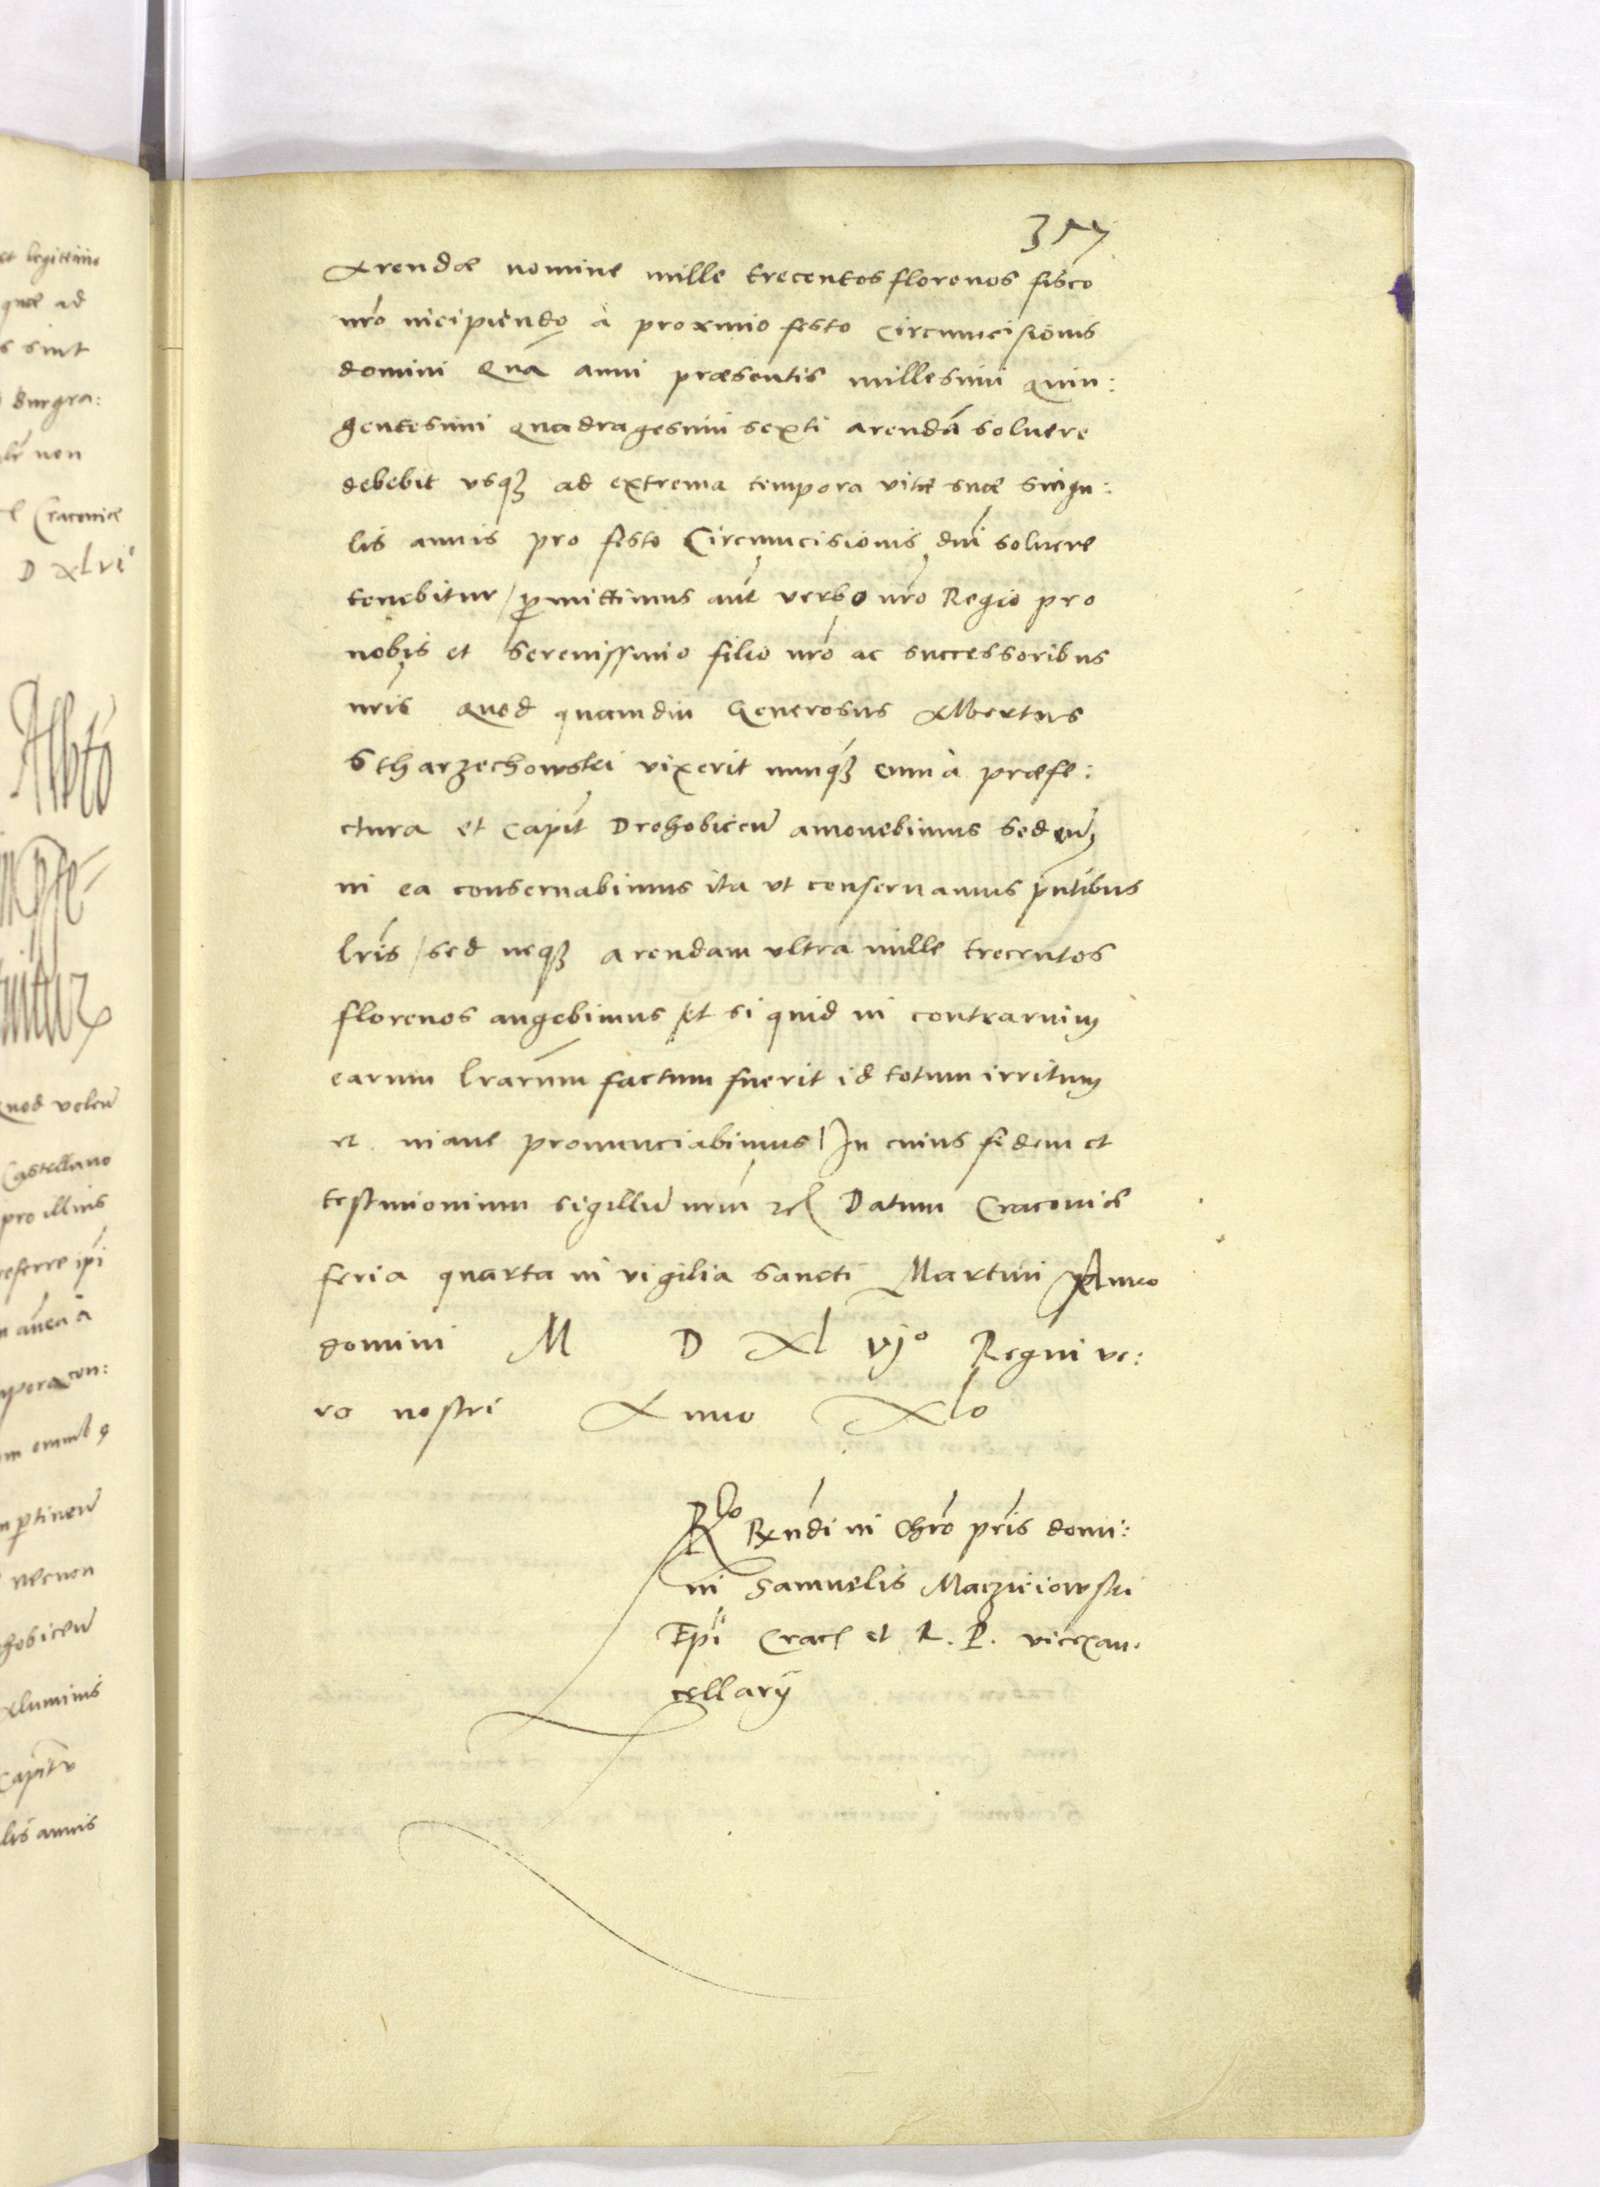 357
Arendæ nomine mille trecentos florenos fisco
nr̃o incipiendo à proximo festo Circumcisionis
domini Quã anni præsentis millesimi quin:
gentesimi quadragesimi sexti arendã soluere
debebit vsq3 ad extrema tempora vitæ suæ singu:
lis annis pro festo Circumcisionis dñi soluere
tenebitur / ꝑmittimus aũt verbo nr̃o Regio pro
nobis et Serenissimo filio nr̃o ac successoribus
nr̃is Quod quamdiu Generosus Albertus
Stharzechowski vixerit nunq̃3 eum à præfe:
ctura et Capit̃ Drohobiceñ amouebimus sed eum
in ea conseruabimus ita vt conseruamus pñtibus
lr̃is / sed neq3 arendam vltra mille trecentos
florenos augebimus et si quid in contrarium
earum lr̃arum factum fuerit id totum irritum
et inane pronunciabimus / In cuius fidem et
testimonium sigillũ nrũm etc̃ Datum Cracouiæ
feria quarta in vigilia Sancti Martini Anno
domini M D Xl vjº Regni ve:
ro nostri Anno Xlo
Rlo Rx̃ndi in Chr̃o pr̃is domi:
ni Samuelis Maczieiowski
Ep̃i Crac̃ et R. P. vicexan.
cellarij
et legittime
quæ ad
s sint
burgra:
non
Cracouiæ
D xlviº
Albtõ
Quod volen̄
Castellano
pro illius
referre ip̃i
à
tempora con:
ꝑtinen̄
necnon
hobicen̄
lis annis